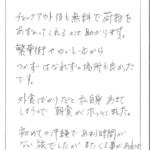 チェックアウト後も無料で荷物を
あずかってくれるのは助かります。
繁華街やゆいレールから
つかずはなれずの場所も良かった
です。
外食ばかりだと私自身あせて
しまうので朝食がホッとしました。
初めての沖縄であまり時間が
ない旅でしたがまたくる事があれば